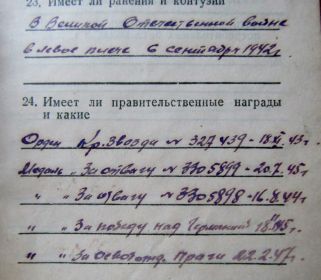 23. Имеет ли ранения и контузии
В Великой Отечественной войне
в левое плечо 6 сентября 1942 г
24. Имеет ли правительственные награды
и какие
Орден Кр. Звезда № 327439 - 18.XI.43 г.
Медаль „За отвагу № 3305899 - 20.2.45 г.
„ „За отвагу № 3305898 - 16.8.44 г.
„ „За победу над Германией
„ „За освобожд. Праги 22.2.47 г.